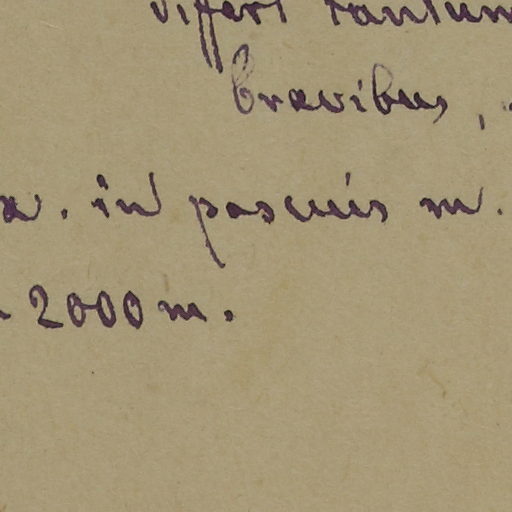 differt tantum
brevibus,
a. in pascuis m.
2000 m.